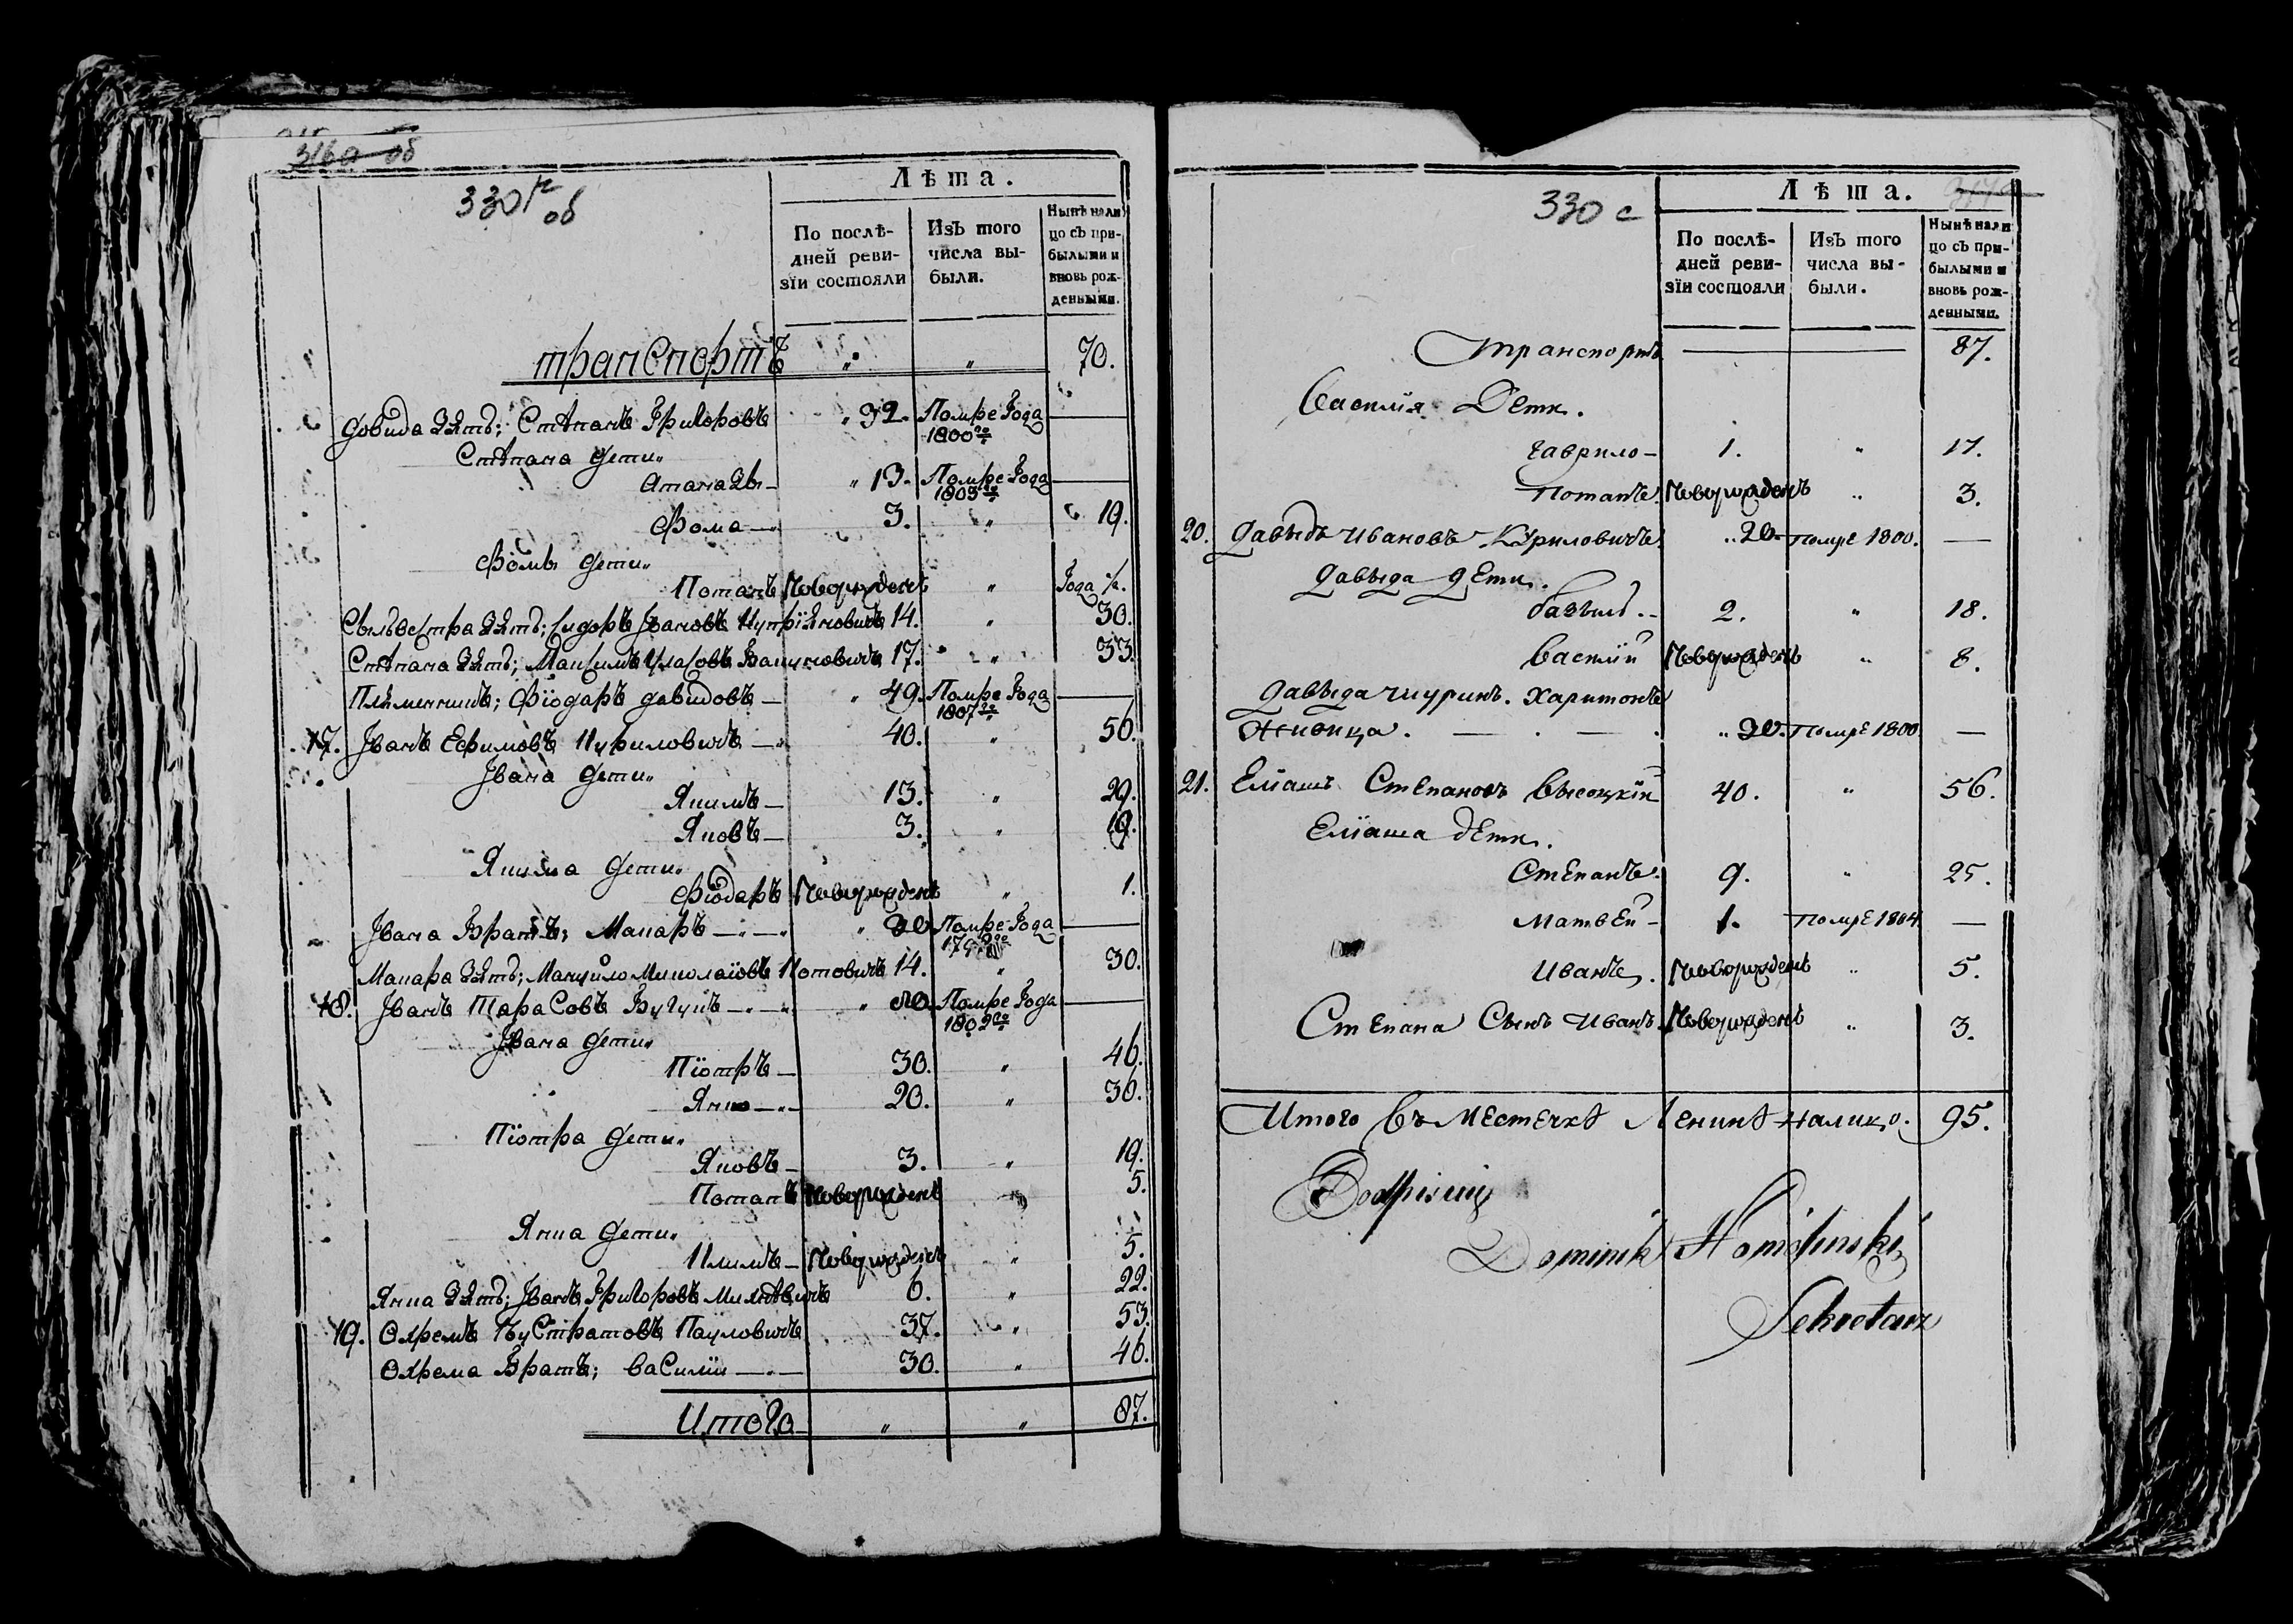 316а об
330 г об
Лѣта.
По послѣдней ревизїи состояли
Изъ того числа выбыли.
Нынѣ налицо съ прибылыми и вновь рожденными.
транспортъ " " 70.
Довида Зять; Стѣпанъ Григоровъ " 32. Помре Года 1800го —
Стѣпана дети"
Атаназы — " 13. Помре Года 1803го —
Фома — 3. " 19.
Фомы дети"
Потапъ Новорожденъ " Года ½.
Сыльвестра Зять; Сидоръ Івановъ Купріяновичъ 14. " 30.
Стѣпана Зять; Максимъ Уласовъ Вакуловичъ 17. " 33.
Племенникъ; Фіодаръ Давидовъ — " 49. Помре Года 1807го —
17. Іванъ Ефимовъ Куриловичъ — 40. " 56.
Івана дети"
Якимъ — 13. " 29.
Яковъ — 3. " 19.
Якима дети"
Фіодаръ Новорожденъ " 1.
Івана Братъ; Макаръ — " 20 Помре Года —
Макара Зять; Миколаіовъ Котовичъ 14. " 30.
18. Іванъ Тарасовъ — " Помре Года 1802го —
Івана дети"
Піотръ — 30. " 46.
Янко — 20. " 36.
Піотра дети"
Яковъ — 3. " 19.
Потапъ Новорожденъ " 5.
Янка дети"
Климъ — Новорожденъ " 5.
Янка Зять; Іванъ Григоровъ 6. " 22.
19. Охремъ Пауловичъ 37. " 53.
Охрема Братъ; Василіи — 30. " 46.
Итого " " 87.
330 с
Лѣта.
По послѣдней ревизїи состояли
Изъ того числа выбыли.
Нынѣ налицо съ прибылыми и вновь рожденными.
Транспортъ — 87.
Василія Дети.
Гаврило — 1. " 17.
Потапъ. Новорожденъ " 3.
20. Давыдъ Ивановъ Куриловичъ. " 20. Помре 1800. —
Давыда дети.
Базыль. — 2. " 18.
Василій Новорожденъ " 8.
Давыда шуринъ. Харитонъ
Жибица. — . — . " 20. Помре 1800. —
21. Еліашъ Степановъ Высоцкій 40. " 56.
Еліаша дети.
Степанъ. 9. " 25.
Матвей — 1. Помре 1804. —
Иванъ. Новорожденъ " 5.
Степана Сынъ Иванъ. Новорожденъ " 3.
Итого въ местечкѣ Ленинѣ налицо. 95.
Dominik
Sekretarz